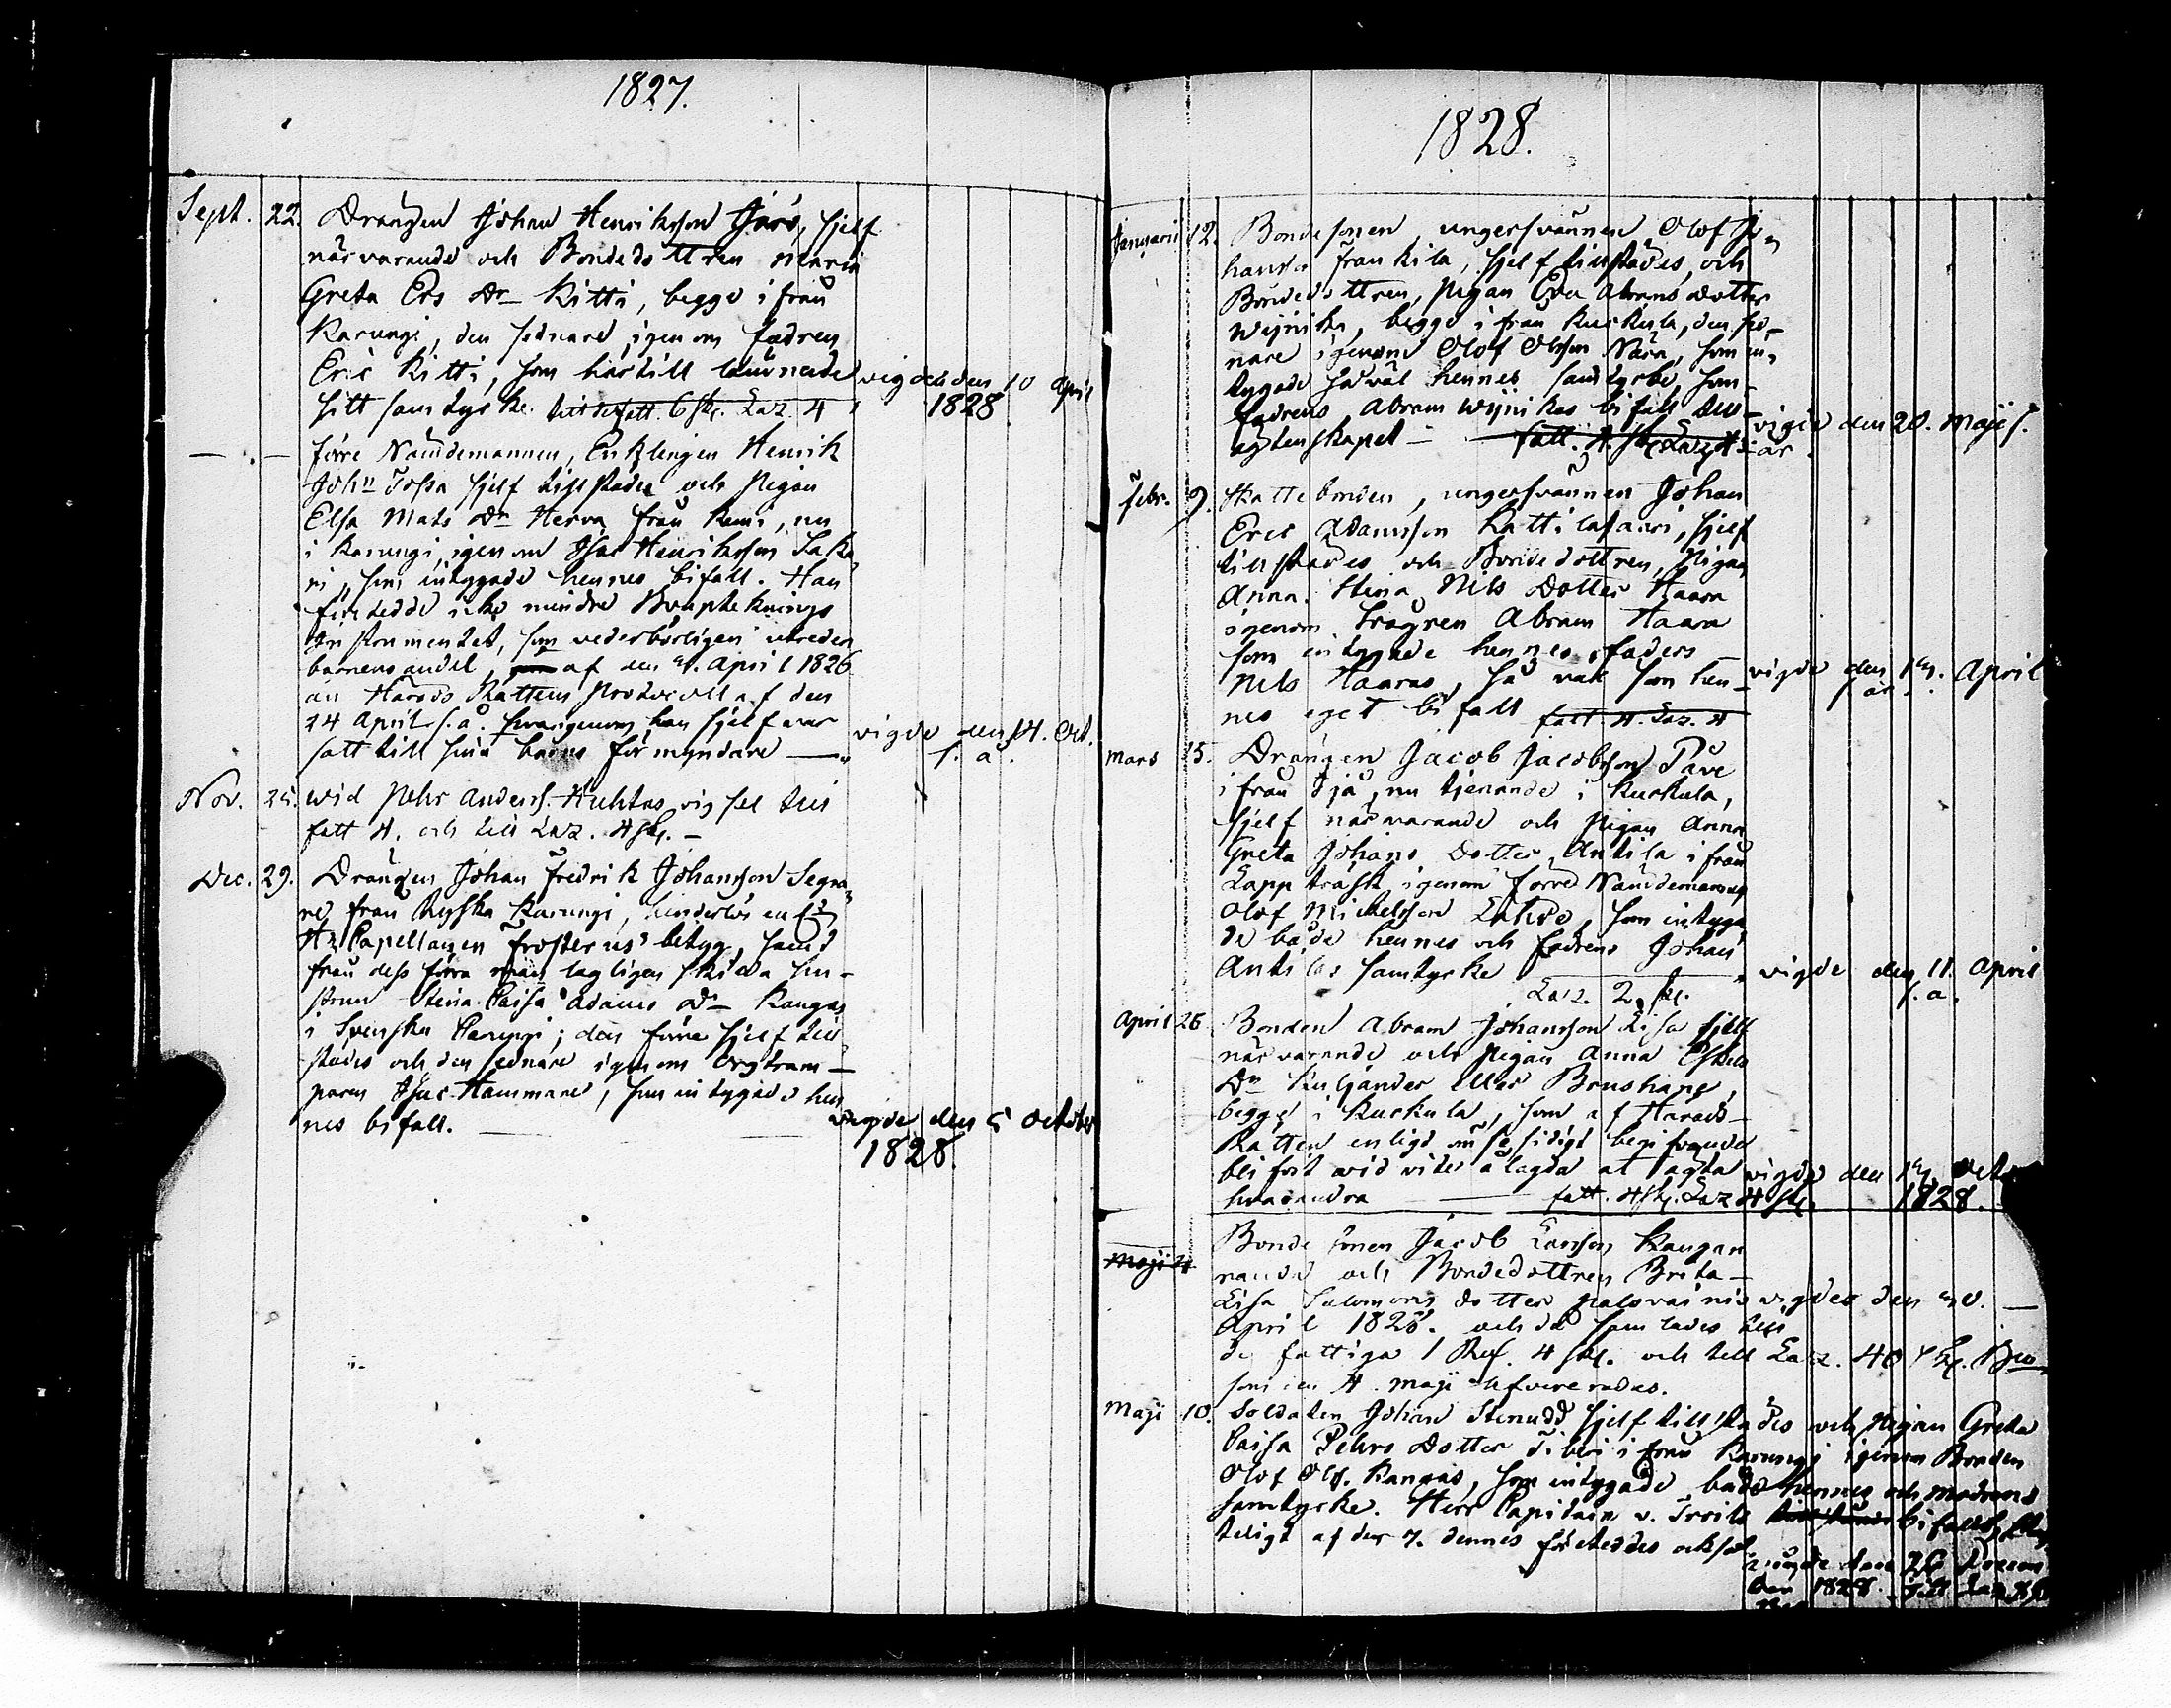 1827.
Sept. 22. Drängen Johan Henriksson Jars, sjelf
närvarande och Bondedottren Maria
Greta Ers Dr Kitti, begge ifrån
Karungi, den sednare, igenom fadren
Eric Kitti, som härtill lämnade vigdes den 10 April
sitt samtycke. fatt. 6 sk. Laz. 4 1828
förre Nämdemannen, Enklingen Henrik
John Tossa sjelf tillstädes och Pigan
Elsa Mats Dr Herva från Kemi, nu
i Karungi, igenom Isac Henriksson Laka
ri, som intygade hennes bifall. Han
företedde icke mindre Bouptecknings
Instrumentet, som vederbörligen utreder
barnens andel, af den 9. April 1826
än Härads Rättens Protocoll af den
24 April s.a. hvarigenom han sjelf var
satt till sina barns förmyndare — vigde den 14. Oct.
s. a.
Nov. 25. wid Pehr Anders. Huhtas vigsel till
fatt 4. och till Laz. 4 sk. —
Dec. 29. Drängen Johan Fredrik Johansson Segra
re från Ryska Karungi, hinderlös enligt
Hr Capellanen Frosterus' betyg, samt
från dess förra man lagligen skilda hu-
strun Stina Caisa Adams Dr Kangas
i Svenska Karungi; den förre sjelf till
städes och den sednare igenom Orgtram-
paren Isac Hammare, som intygade hen
nes bifall. — vigde den 5 October
1828.
1828.
Januarii 12. Bondesonen, ungersvännen Olof Jo-
hansson från Kila, sjelf tillstädes, och
Bondedottren, Pigan Eva Abrams dotter
Wijnikka, begge ifrån Kuckula, den sed-
nare igenom Olof Olsson Nära, som in-
tygade såväl hennes samtycke, som
fadrens Abram Wijnikas bifall till vigde den 20. Maji s.
egtenskapet — fatt. 4. sk. Laz. 4 år
Febr. 9. Skattebonden, ungersvännen Johan
Eric Adamsson Kattilasaari, sjelf
tillstädes och Bondedottren, Pigan
Anna Stina Nils Dotter Haara
igenom Trägren Abram Haara
som intygade hennes faders
Nils Haaras, så väl som hen- vigde den 19. April
nes eget bifall fatt. 4. Laz. 4 s. år
Mars 15. Drängen Jacob Jacobsson Pave
ifrån Ijå, nu tjenande i Kuckula,
sjelf närvarande och Pigan Anna
Greta Johans Dotter Antila ifrån
Lappträsk igenom förre Nämdemannen
Olof Mickelsson Lahdo, som intyga
de både hennes och fadrens Johan
Antilas samtycke — vigde den 11. April
Laz. 2 sk. s. a.
April 26 Bonden Abram Johansson Lisa sjelf
närvarande och Pigan Anna Eskils
Dr Kuljander eller Brushane,
begge i Kuckula, som af Härads-
Rätten enligt ömsesidigt begifvande
blifvit wid vite ålagda at ägta vigde den 19. Octo
hvarandra — fatt. 4 sk. Laz 4 sk. 1828.
Bonde sonen Jacob Larsson Kangan
Maji 4 rande och Bondedottren Brita
Lisa Salomons dotter Palovainio vigdes den 20. —
April 1828. och då samlades till
de fattiga 1 Rd. 4 sk. och till Laz. 40 sk. Bco
som den 4. Maji afleverades.
Maji 10. Soldaten Johan Stenudd sjelf tillstädes och Pigan Greta
Caisa Pehrs Dotter Tiberi ifrån Karungi igenom Bonden
Olof Ols. Kangas, som intygade både hennes och modrens
samtycke. Herr Capitain v. Troils bifall
teligt af den 7. dennes företeddes också
vigde den 26 Decem
ber 1828.